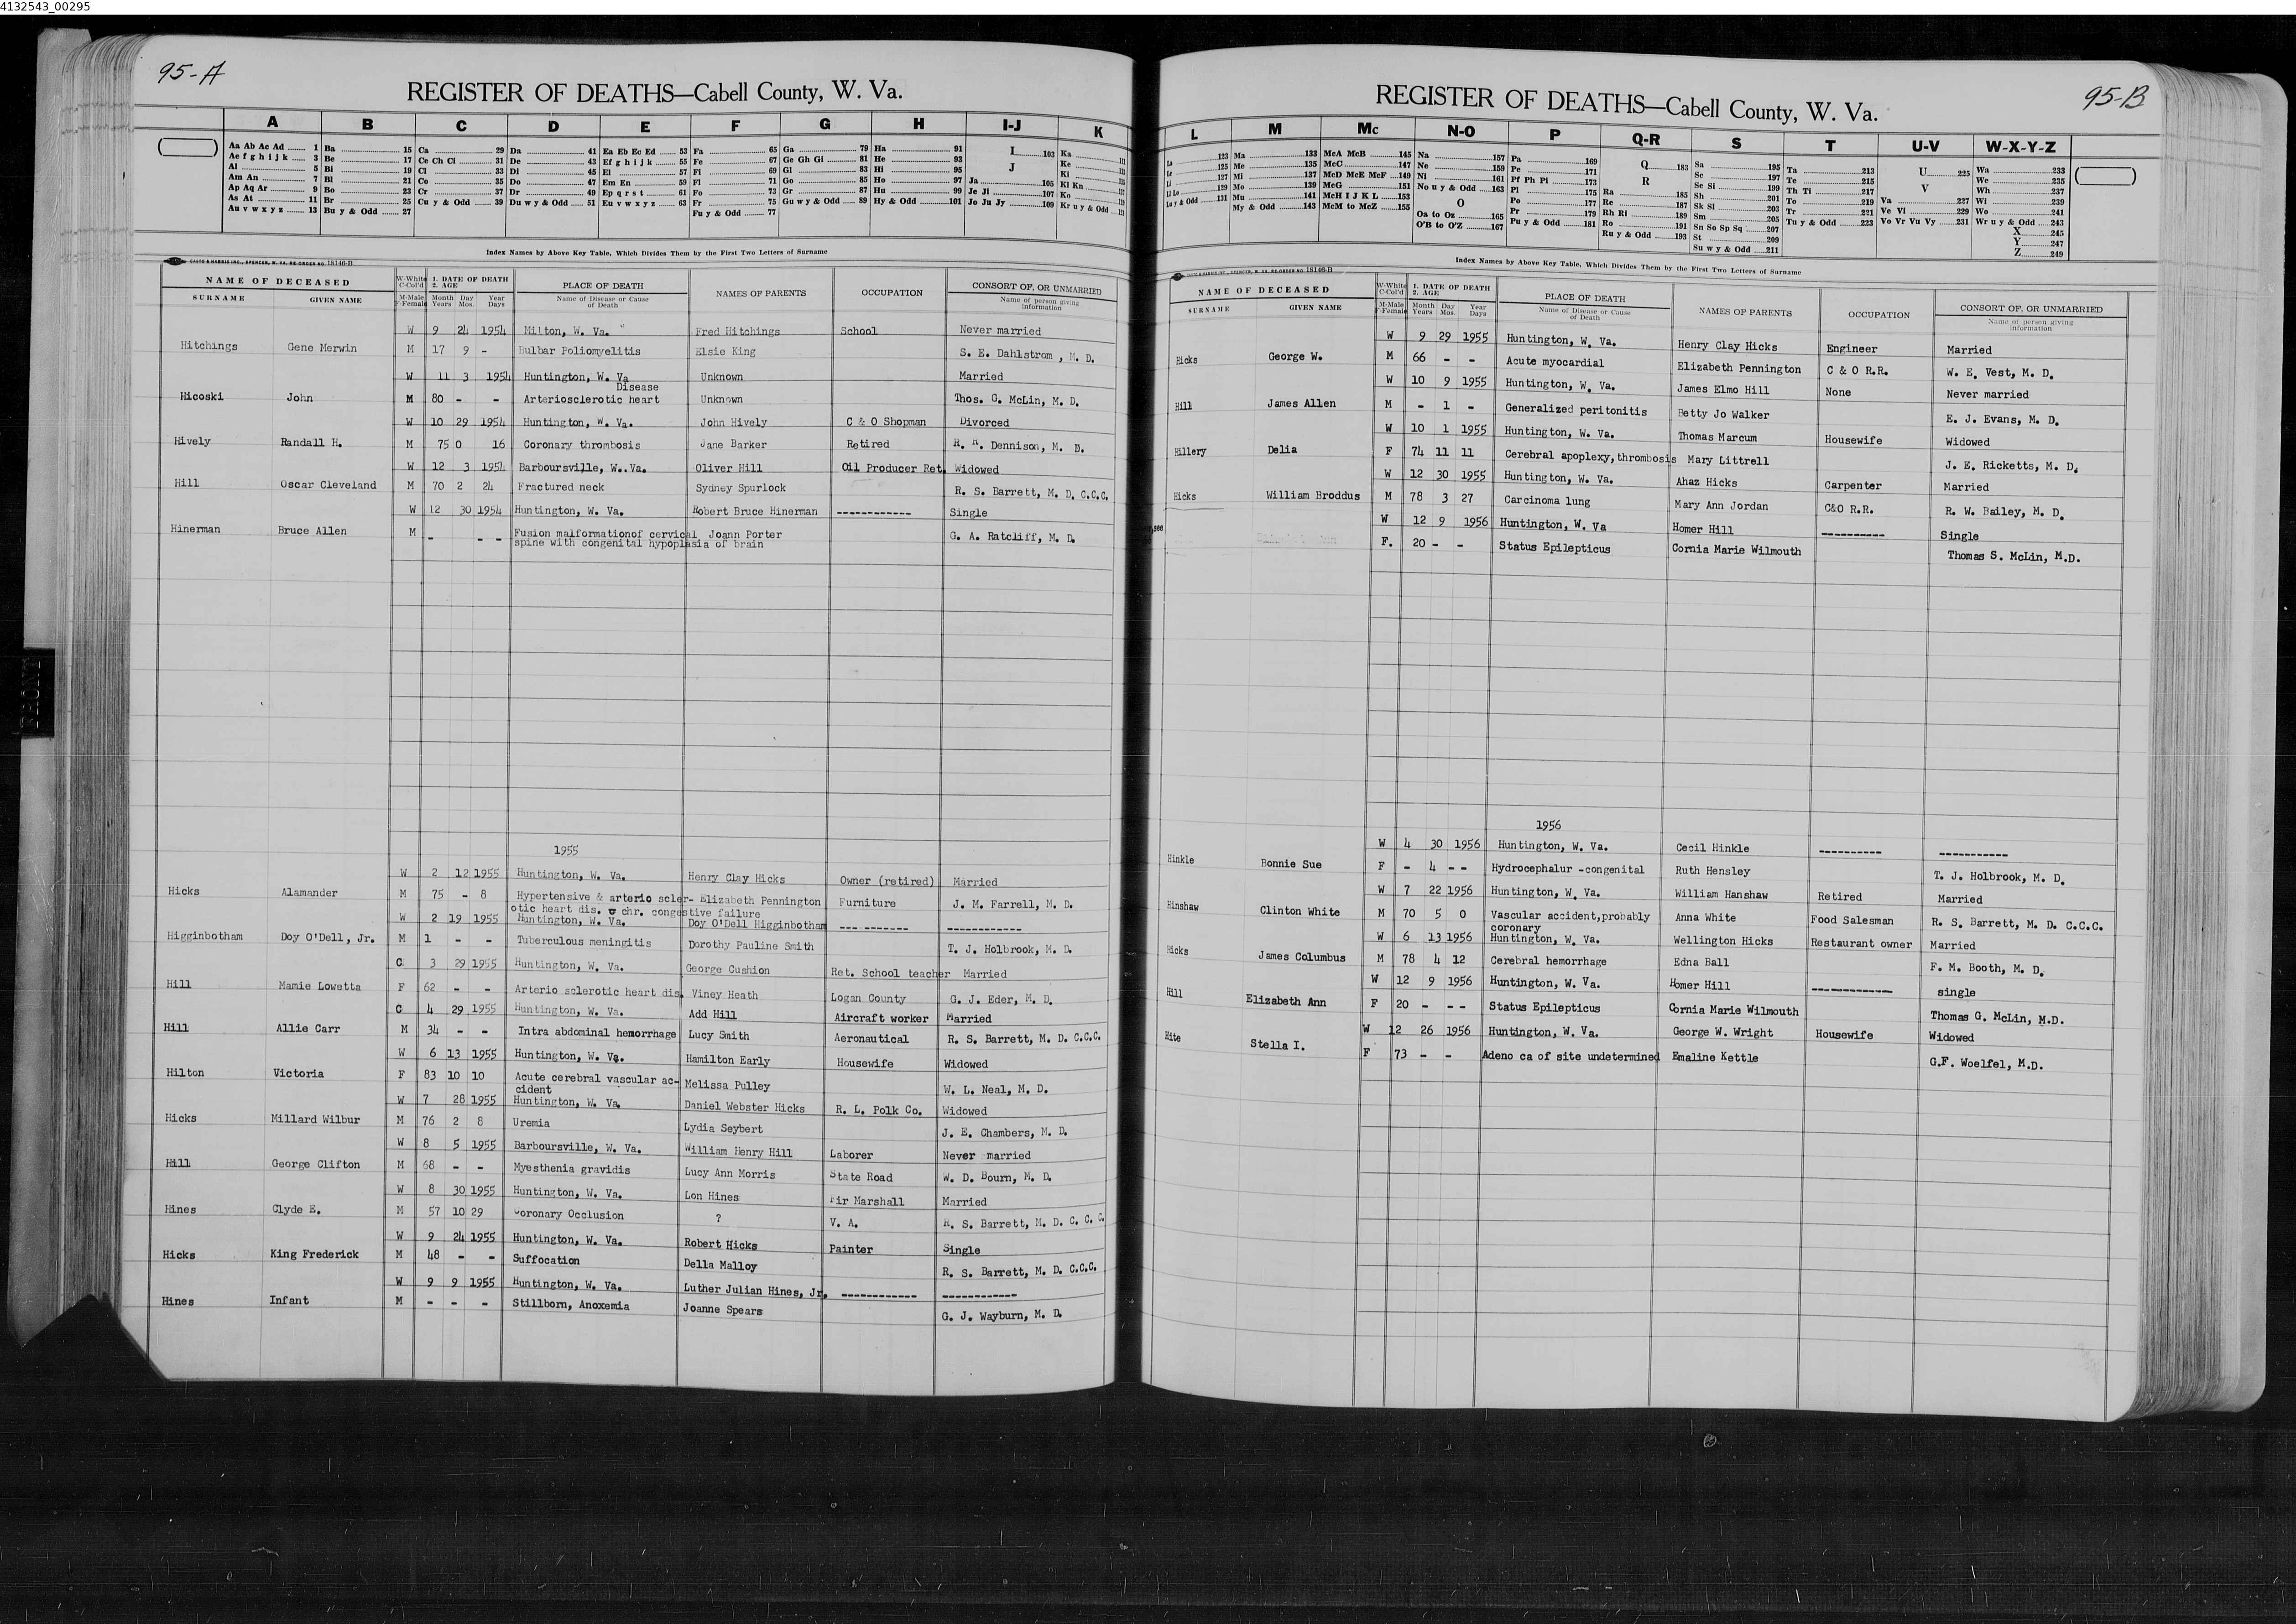 4132543_00295
95-A
REGISTER OF DEATHS—Cabell County, W. Va.
A B C D E F G H I-J K
Aa Ab Ac Ad 1 Ba 15 Ca 29 Da 41 Ea Eb Ec Ed 53 Fa 65 Ga 79 Ha 91 I 103 Ka
Ae f g h i j k 3 Be 17 Ce Ch Ci 31 De 43 Ef g h i j k 55 Fe 67 Ge Gh Gi 81 He 93 J Ke
Al 5 Bi 19 Cl 33 Di 45 El 57 Fi 69 Gl 83 Hi 95 Ki
Am An 7 Bl 21 Co 35 Do 47 Em En 59 Fl 71 Go 85 Ho 97 Ja 105 Kl Kn
Ap Aq Ar 9 Bo 23 Cr 37 Dr 49 Ep q r s t 61 Fo 73 Gr 87 Hu 99 Je Ji 107 Ko
As At 11 Br 25 Cu y & Odd 39 Du w y & Odd 51 Eu v w x y z 63 Fr 75 Gu w y & Odd 89 Hy & Odd 101 Jo Ju Jy 109 Kr u y & Odd
Au v w x y z 13 Bu y & Odd 27 Fu y & Odd 77
Index Names by Above Key Table, Which Divides Them by the First Two Letters of Surname
CASTO & HARRIS INC., SPENCER, W. VA. RE-ORDER NO. 18146-B
NAME OF DECEASED W-White C-Col'd 1. DATE OF DEATH 2. AGE PLACE OF DEATH NAMES OF PARENTS OCCUPATION CONSORT OF, OR UNMARRIED
SURNAME GIVEN NAME M-Male F-Female Month Years Day Mos. Year Days Name of Disease or Cause of Death Name of person giving information
W 9 24 1954 Milton, W. Va. Fred Hitchings School Never married
Hitchings Gene Merwin M 17 9 - Bulbar Poliomyelitis Elsie King S. E. Dahlstrom, M. D.
W 11 3 1954 Huntington, W. Va Unknown Married
Disease
Hicoski John M 80 - - Arteriosclerotic heart Unknown Thos. G. McLin, M. D.
W 10 29 1954 Huntington, W. Va. John Hively C & O Shopman Divorced
Hively Randall H. M 75 0 16 Coronary thrombosis Jane Barker Retired R. R. Dennison, M. D.
W 12 3 1954 Barboursville, W..Va. Oliver Hill Oil Producer Ret. Widowed
Hill Oscar Cleveland M 70 2 24 Fractured neck Sydney Spurlock R. S. Barrett, M. D. C.C.C.
W 12 30 1954 Huntington, W. Va. Robert Bruce Hinerman ------------ Single
Hinerman Bruce Allen M - - - Fusion malformationof cervical Joann Porter G. A. Ratcliff, M. D.
spine with congenital hypoplasia of brain
1955
W 2 12 1955 Huntington, W. Va. Henry Clay Hicks Owner (retired) Married
Hicks Alamander M 75 - 8 Hypertensive & arterio scler- Elizabeth Pennington Furniture J. M. Farrell, M. D.
otic heart dis. chr. congestive failure
W 2 19 1955 Huntington, W. Va. Doy O'Dell Higginbotham --- ------- ------------
Higginbotham Doy O'Dell, Jr. M 1 - - Tuberculous meningitis Dorothy Pauline Smith T. J. Holbrook, M. D.
C 3 29 1955 Huntington, W. Va. George Cushion Ret. School teacher Married
Hill Mamie Lowetta F 62 - - Arterio sclerotic heart dis. Viney Heath Logan County G. J. Eder, M. D.
C 4 29 1955 Huntington, W. Va. Add Hill Aircraft worker Married
Hill Allie Carr M 34 - - Intra abdominal hemorrhage Lucy Smith Aeronautical R. S. Barrett, M. D. C.C.C.
W 6 13 1955 Huntington, W. Va. Hamilton Early Housewife Widowed
Hilton Victoria F 83 10 10 Acute cerebral vascular ac- Melissa Pulley W. L. Neal, M. D.
cident
W 7 28 1955 Huntington, W. Va. Daniel Webster Hicks R. L. Polk Co. Widowed
Hicks Millard Wilbur M 76 2 8 Uremia Lydia Seybert J. E. Chambers, M. D.
W 8 5 1955 Barboursville, W. Va. William Henry Hill Laborer Never married
Hill George Clifton M 68 - - Myesthenia gravidis Lucy Ann Morris State Road W. D. Bourn, M. D.
W 8 30 1955 Huntington, W. Va. Lon Hines Fir Marshall Married
Hines Clyde E. M 57 10 29 Coronary Occlusion ? V. A. R. S. Barrett, M. D. C. C. C.
W 9 24 1955 Huntington, W. Va. Robert Hicks Painter Single
Hicks King Frederick M 48 - - Suffocation Della Malloy R. S. Barrett, M. D. C.C.C.
W 9 9 1955 Huntington, W. Va. Luther Julian Hines, Jr. ------------ ------------
Hines Infant M - - - Stillborn, Anoxemia Joanne Spears G. J. Wayburn, M. D.
FRONT
95-B
REGISTER OF DEATHS—Cabell County, W. Va.
L M Mc N-O P Q-R S T U-V W-X-Y-Z
La 123 Ma 133 McA McB 145 Na 157 Pa 169 Q 183 Sa 195 Ta 213 U 225 Wa 233
Le 125 Me 135 McC 147 Ne 159 Pe 171 R Se 197 Te 215 V We 235
Li 127 Mi 137 McD McE McF 149 Ni 161 Pf Ph Pi 173 Ra 185 Sc Si 199 Th Ti 217 Va 227 Wh 237
Ll Lo 129 Mo 139 McG 151 No u y & Odd 163 Pl 175 Re 187 Sh 201 To 219 Ve Vi 229 Wi 239
Lu y & Odd 131 Mu 141 McH I J K L 153 O Po 177 Rh Ri 189 Sk Sl 203 Tr 221 Vo Vr Vu Vy 231 Wo 241
My & Odd 143 McM to McZ 155 Oa to Oz 165 Pr 179 Ro 191 Sm 205 Tu y & Odd 223 Wr u y & Odd 243
O'B to O'Z 167 Pu y & Odd 181 Ru y & Odd 193 Sn So Sp Sq 207 X 245
St 209 Y 247
Su w y & Odd 211 Z 249
Index Names by Above Key Table, Which Divides Them by the First Two Letters of Surname
CASTO & HARRIS INC., SPENCER, W. VA. RE-ORDER NO. 18146-B
NAME OF DECEASED W-White C-Col'd 1. DATE OF DEATH 2. AGE PLACE OF DEATH NAMES OF PARENTS OCCUPATION CONSORT OF, OR UNMARRIED
SURNAME GIVEN NAME M-Male F-Female Month Years Day Mos. Year Days Name of Disease or Cause of Death Name of person giving information
W 9 29 1955 Huntington, W. Va. Henry Clay Hicks Engineer Married
Hicks George W. M 66 - - Acute myocardial Elizabeth Pennington C & O R.R. W. E. Vest, M. D.
W 10 9 1955 Huntington, W. Va. James Elmo Hill None Never married
Hill James Allen M - 1 - Generalized peritonitis Betty Jo Walker E. J. Evans, M. D.
W 10 1 1955 Huntington, W. Va. Thomas Marcum Housewife Widowed
Hillery Delia F 74 11 11 Cerebral apoplexy,thrombosis Mary Littrell J. E. Ricketts, M. D.
W 12 30 1955 Huntington, W. Va. Ahaz Hicks Carpenter Married
Hicks William Broddus M 78 3 27 Carcinoma lung Mary Ann Jordan C&O R.R. R. W. Bailey, M. D.
W 12 9 1956 Huntington, W. Va Homer Hill ---------- Single
F. 20 - - Status Epilepticus Cornia Marie Wilmouth Thomas S. McLin, M.D.
1956
W 4 30 1956 Huntington, W. Va. Cecil Hinkle ---------- -----------
Hinkle Bonnie Sue F - 4 - - Hydrocephalur -congenital Ruth Hensley T. J. Holbrook, M. D.
W 7 22 1956 Huntington, W. Va. William Hanshaw Retired Married
Hinshaw Clinton White M 70 5 0 Vascular accident,probably Anna White Food Salesman R. S. Barrett, M. D. C.C.C.
coronary
W 6 13 1956 Huntington, W. Va. Wellington Hicks Restaurant owner Married
Hicks James Columbus M 78 4 12 Cerebral hemorrhage Edna Ball F. M. Booth, M. D.
W 12 9 1956 Huntington, W. Va. Homer Hill ------------- single
Hill Elizabeth Ann F 20 - - - Status Epilepticus Cornia Marie Wilmouth Thomas G. McLin, M.D.
W 12 26 1956 Huntington, W. Va. George W. Wright Housewife Widowed
Hite Stella I. F 73 - - Adeno ca of site undetermined Emaline Kettle G.F. Woelfel, M.D.